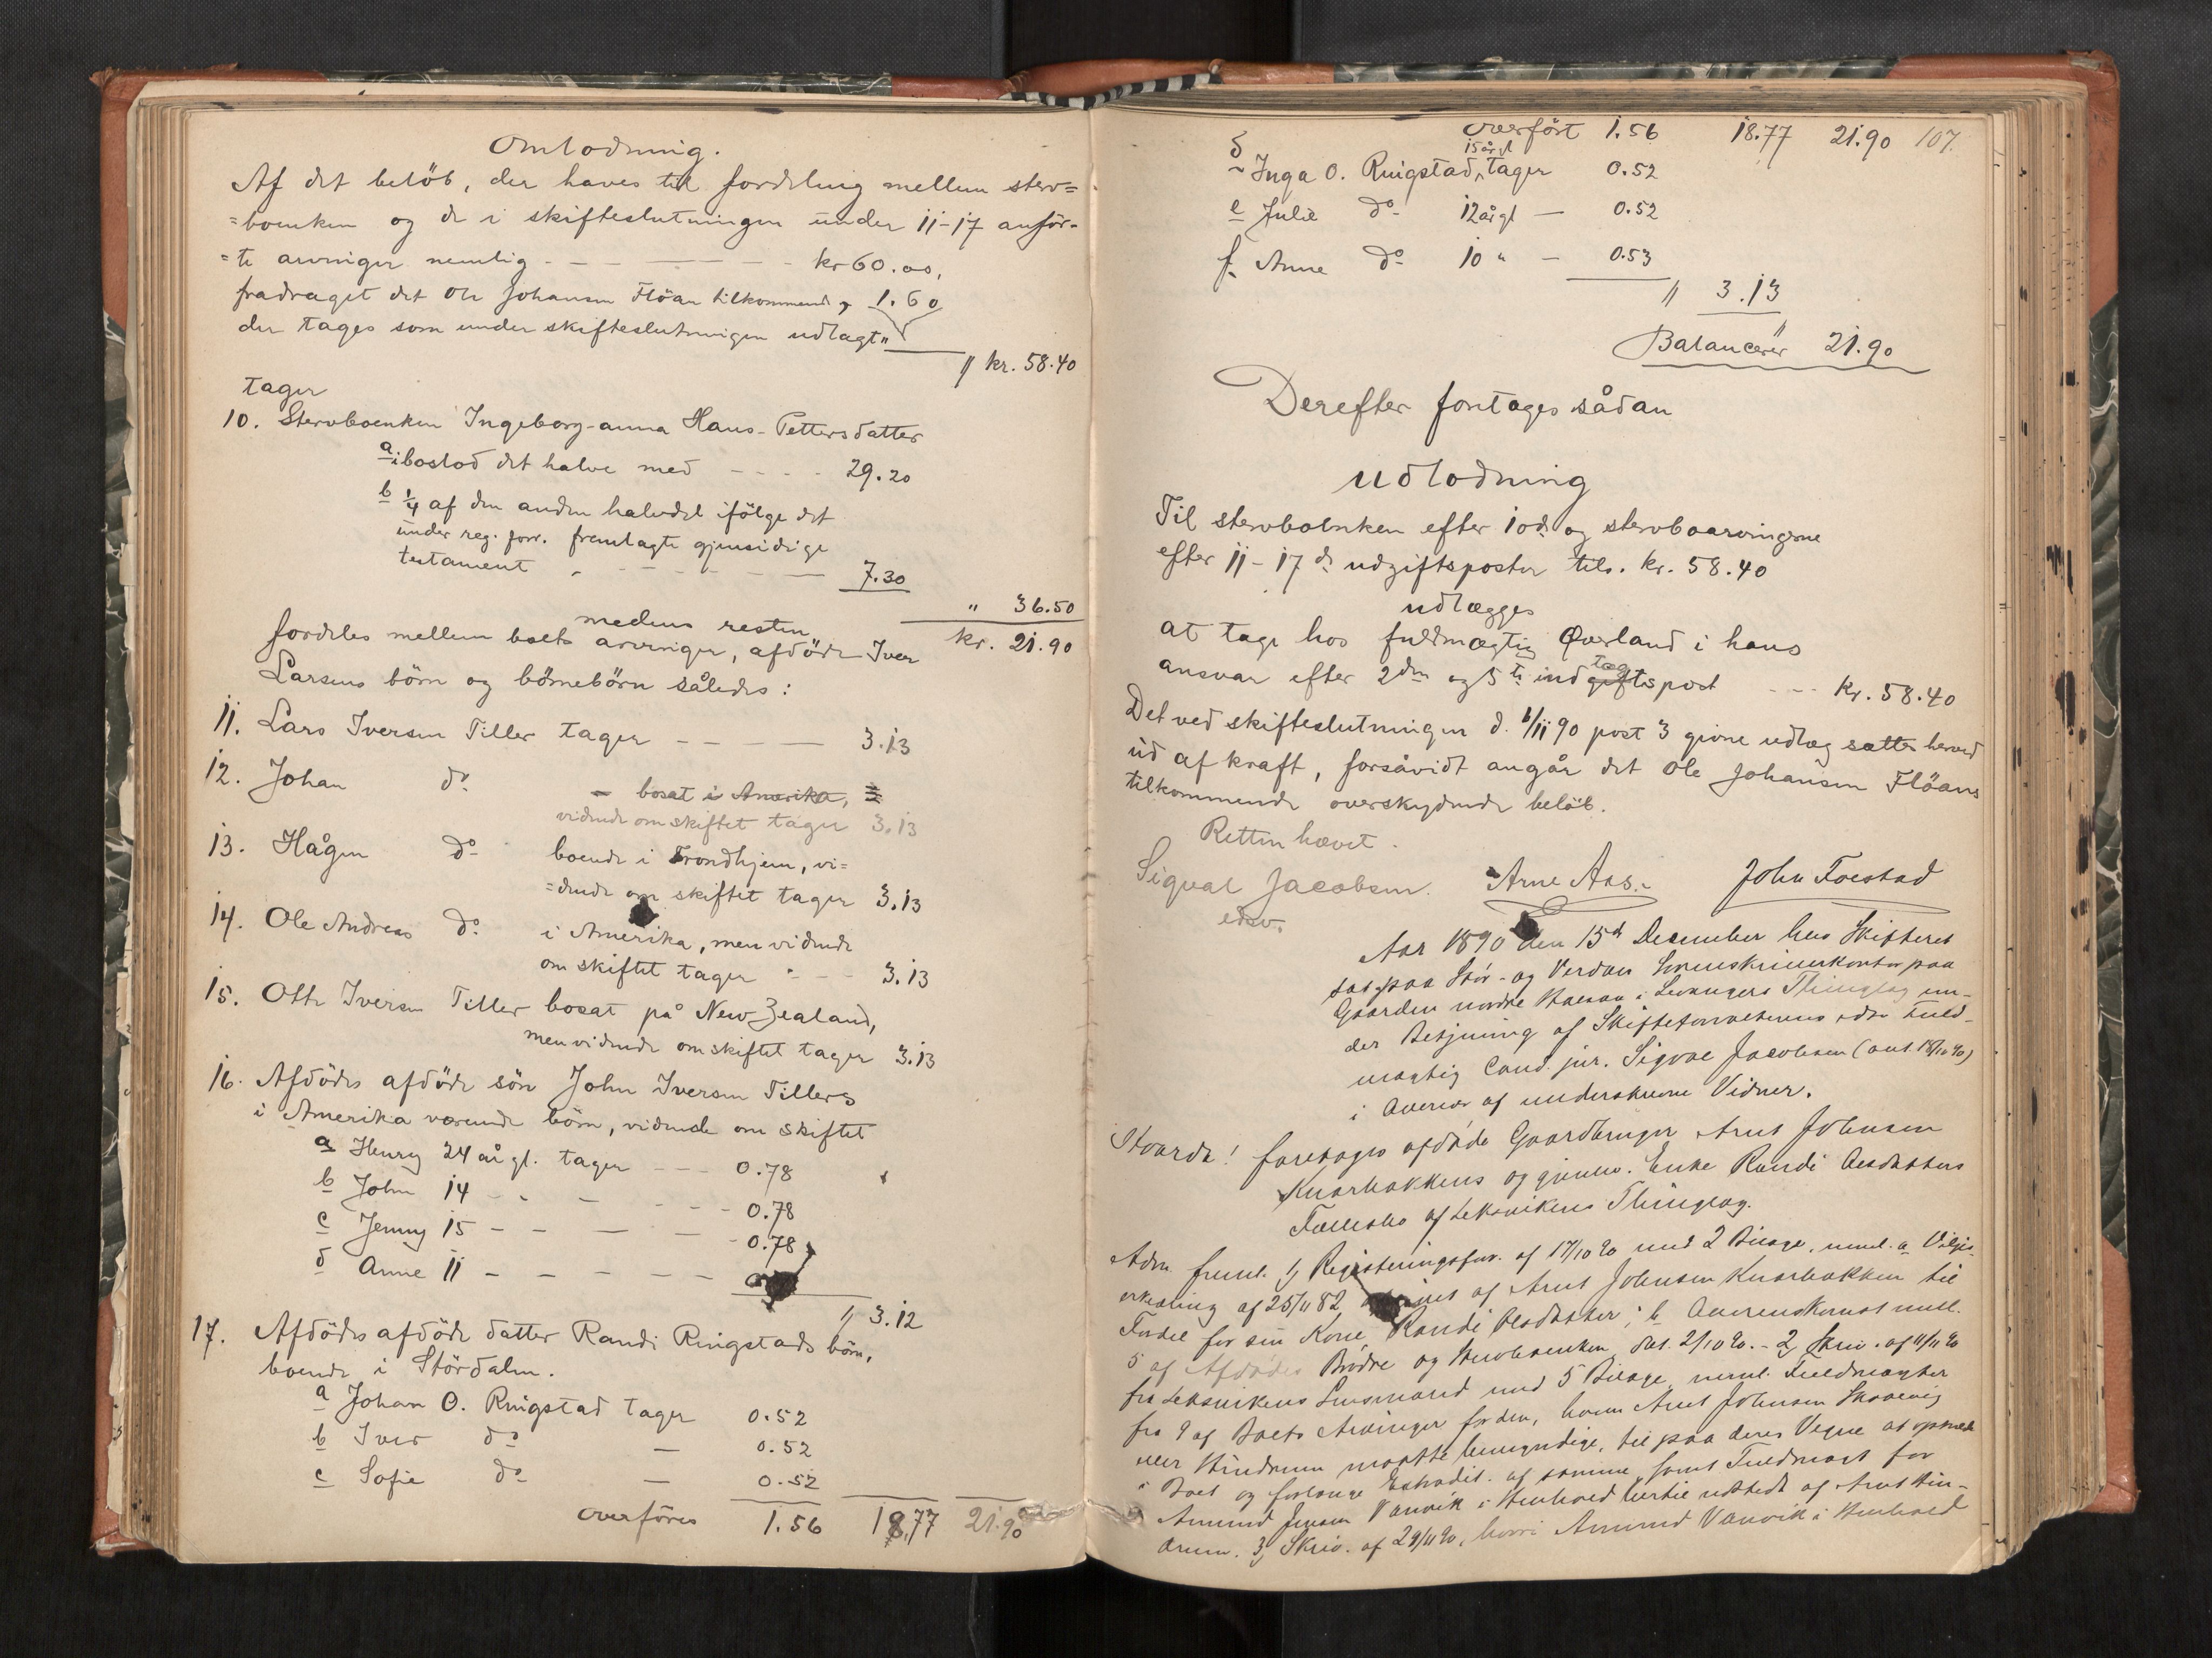 Omlodning.
Af det beløb, der haves til fordeling mellem sterv=
=boenken og de i skifteslutningen under 11-17 anfør-
=te arvinger nemlig - - - kr 60.00,
fradraget det Ole Johansen Flöan tilkommende, 1.60
der tages som under skifteslutningen udlagt "
" kr. 58.40
tager
10. Stervboenken Ingeborg-anna Hans-Pettersdatter
a i boslod det halve med - - - - 29.20
b 1/4 af den anden halvdel ifölge det
under reg. forr. fremlagte gjensidige
testament - - - - 7.30
" 36.50
medens resten kr. 21.90
fordeles mellem boets arvinger, afdöde Iver
Larsens börn og börnebörn således:
11. Lars Iversen Tiller tager - - - 3.13
12. Johan do - bosat i Amerika,
vidende om skiftet tager 3.13
13. Hågen do boende i Trondhjem, vi=
=dende om skiftet tager 3.13
14. Ole Andreas do i Amerika, men vidende
om skiftet tager - - - 3.13
15. Otte Iversen Tiller bosat på New Zealand,
men vidende om skiftet tager 3.13
16. Afdödes afdöde sön John Iversen Tillers
i Amerika værende börn, vidende om skiftet
a Henry 24 år gl. tager - - - 0.78
b John 14 - - - - 0.78
c Jenny 15 - - - - 0.78
d Anne 11 - - - - -
" 3.12
17. Afdödes afdöde datter Randi Ringstads börn,
boende i Stördalen.
a Johan O. Ringstad tager 0.52
b Iver do - 0.52
c Sofie do - 0.52
overföres 1.56 18,77 21.90
overfört 1.56 18.77 21.90 107.
d Inga O. Ringstad, 15 år gl tager 0.52
e Julie do 12 år gl - 0.52
f. Anne do 10 " - 0.53
" 3.13
Balancerer 21.90
Derefter foretages sådan
udlodning
Til stervboenken efter 10de og stervboarvingerne
efter 11-17 de udgiftsposter tils. kr. 58.40
udlægges
at tage hos fuldmægtig Øverland i hans
ansvar efter 2den og 5te indtægtspost - - - kr. 58.40
Det ved skifteslutningen d. 6/11 90 post 3 givne udlæg sættes herved
ud af kraft, forsåvidt angår det Ole Johansen Flöans
tilkommende overskydende beløb.
Retten hævet.
Sigval Jacobsen. Arne Aas. John Foestad
edsv.
Aar 1890 den 15de December blev Skifteret
sat paa Stör- og Værdals Sorenskriverkontor paa
Gaarden nordre i Levangers Thinglag un-
der Betjening af Skifteforvalterens edsv. Fuld-
mægtig Cand. jur. Sigval Jacobsen (aut. 18/10 90)
i Overvær af underskrevne Vidner.
Hvorda! foretages afdøde Gaardbruger Arnt Johnsen
Knarbakkens og gjenlev. Enke Randi Olsdatters
Fællesbo af Leksvikens Thinglag.
Adm. freml. 1, Registreringsforr. af 17/10 90 med 2 Bilage, neml. a Viljes-
erklæring af 25/11 82 af Arnt Johnsen Knarbakken til
Fordel for sin Kone Randi Olsdatter; b Overenskomst mell.
5 af Afdødes Brødre og Stervboenken, dat. 2/10 90. - 2, Skriv. af 4/11 90
fra Leksvikens Lensmand med 5 Bilage, neml. Fuldmagter
fra 9 af Boets Arvinger for den, hvem Arnt Johnsen
eller Hindrum maatte bemyndige, til paa deres Vegne at optræde
i Boet og forlange Extradit. af samme, samt Fuldmagt for
Amund Jensen Vanvik i Henhold hertil udstedt af Arnt Hin-
drum. 3, Skriv. af 29/11 90, hvori Amund Vanvik i Henhold